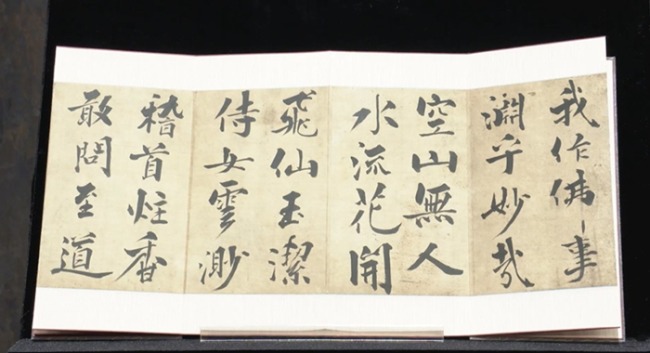 我作佛事
淵乎妙哉
空山無人
水流花開
飛仙玉潔
侍女雲渺
稽首炷香
敢問至道